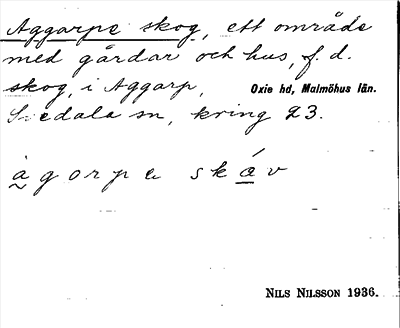 Aggarpe skog, ett område
med gårdar och hus, f. d.
skog, i Aggarp, Oxie hd, Malmöhus län.
Svedala sn, kring 23.
àgorpa skáv
NILS NILSSON 1936.